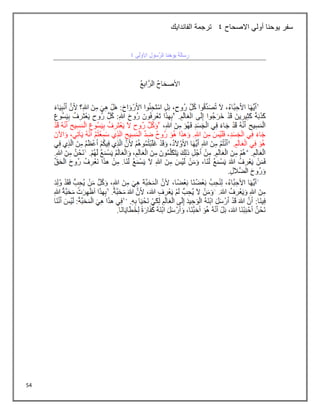 سفر يوحنا أولي الاصحاح ٤ ترجمة الفاندايك
رسالة يوحنا الرسول الاولي ٤
الأصحَاحُ الرَّابعُ
أَيُّهَا الأَحِبَّاءُ، لاَ تُصَدِّقُوا كُلَّ رُوحٍ، بَلِ امْتَحِنُوا الأَرْوَاحَ: هَلْ هِيَ مِنَ اللهِ؟ لأَنَّ أَنْبِيَاءَ
كَذَبَةً كَثِيرِينَ قَدْ خَرَجُوا إِلَى الْعَالَمِ. بِهذَا تَعْرِفُونَ رُوحَ اللهِ: كُلُّ رُوحٍ يَعْتَرِفُ بِيَسُوعَ
الْمَسِيحِ أَنَّهُ قَدْ جَاءَ فِي الْجَسَدِ فَهُوَ مِنَ اللهِ، وَكُلُّ رُوحٍ لاَ يَعْتَرِفُ بِيَسُوعَ الْمَسِيحِ أَنَّهُ قَدْ
جَاءَ فِي الْجَسَدِ، فَلَيْسَ مِنَ اللهِ. وَهذَا هُوَ رُوحُ ضِدِّ الْمَسِيحِ الَّذِي سَمِعْتُمْ أَنَّهُ يَأْتِي، وَالآنَ
هُوَ فِي الْعَالَمِ. أَنْتُمْ مِنَ اللهِ أَيُّهَا الأَوْلاَدُ، وَقَدْ غَلَبْتُمُوهُمْ لأَنَّ الَّذِي فِيكُمْ أَعْظَمُ مِنَ الَّذِي فِي
الْعَالَمِ. هُمْ مِنَ الْعَالَمِ. مِنْ أَجْلِ ذلِكَ يَتَكَلَّمُونَ مِنَ الْعَالَمِ، وَالْعَالَمُ يَسْمَعُ لَهُمْ. نَحْنُ مِنَ اللهِ.
فَمَنْ يَعْرِفُ اللهَ يَسْمَعُ لَنَا، وَمَنْ لَيْسَ مِنَ اللهِ لاَ يَسْمَعُ لَنَا. مِنْ هذَا نَعْرِفُ رُوحَ الْحَقِّ
وَرُوحَ الضَّلاَلِ.
أَيُّهَا الأَحِبَّاءُ، لِنُحِبَّ بَعْضُنَا بَعْضًا، لأَنَّ الْمَحَبَّةَ هِيَ مِنَ اللهِ، وَكُلُّ مَنْ يُحِبُّ فَقَدْ وُلِدَ
مِنَ اللهِ وَيَعْرِفُ اللهَ. وَمَنْ لاَ يُحِبُّ لَمْ يَعْرِفِ اللهَ، لأَنَّ اللهَ مَحَبَّةٌ. بِهذَا أُظْهِرَتْ مَحَبَّةُ اللهِ
فِينَا: أَنَّ اللهَ قَدْ أَرْسَلَ ابْنَهُ الْوَحِيدَ إِلَى الْعَالَمِ لِكَيْ نَحْيَا بِهِ. فِي هذَا هِيَ الْمَحَبَّةُ: لَيْسَ أَنَّنَا
نَحْنُ أَحْبَبْنَا اللهَ، بَلْ أَنَّهُ هُوَ أَحَبَّنَا، وَأَرْسَلَ ابْنَهُ كَفَّارَةً لِخَطَايَانَا.
54